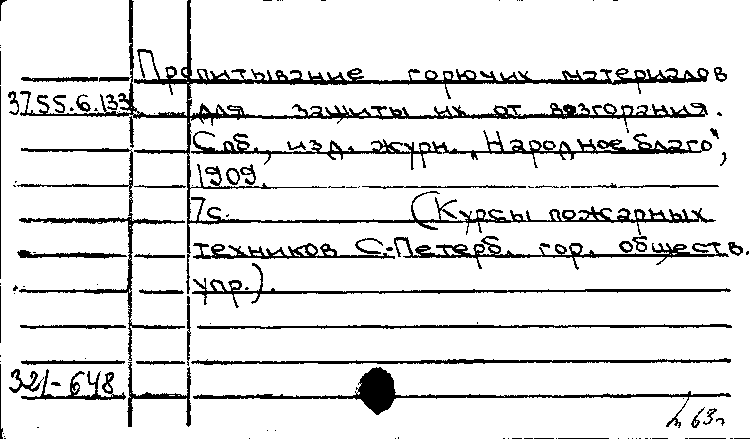 Пропитывание горючих материалов
37.55.6.133 для защиты их от возгорания.
Спб., изд. журн. „Народное благо",
1909.
7с. (Курсы пожарных
техников С-Петерб. гор. обществ.
упр.).
321-648
63г